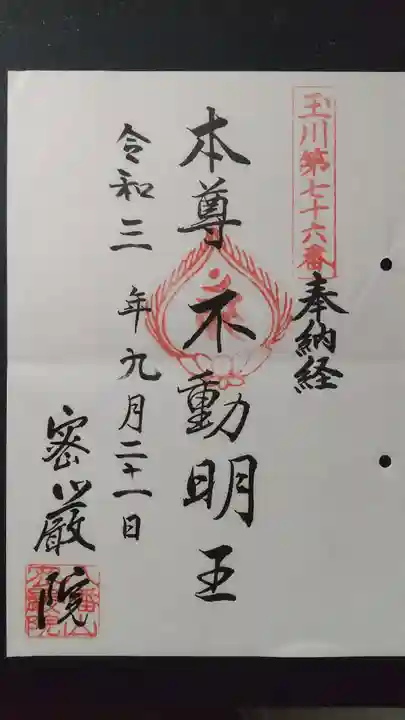 玉川第七十六番
奉納経
本尊不動明王
令和三年九月二十一日
密厳院
八幡山
密厳院